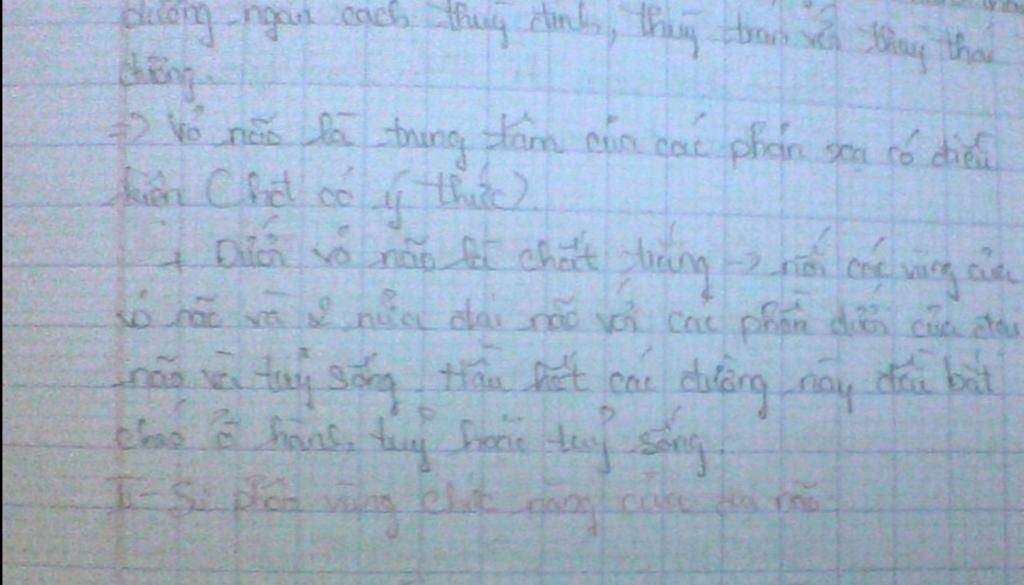 đường ngăn cách thuỳ đỉnh, thuỳ trán với thuỳ thái
dương.
=> Vỏ não là trung tâm của các phản xạ có điều
kiện (Chất có ý thức)
+ Dưới vỏ não là chất trắng -> nối các vùng của
vỏ não và 2 nửa đại não với các phần dưới của đại
não và tuỷ sống. Hầu hết các đường này đều bắt
chéo ở hành tuỷ hoặc tuỷ sống.
II - Sự phân vùng chức năng của đại não